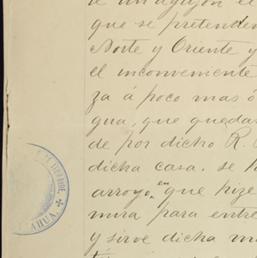 de un aguijon el
que se pretende
Norte y Oriente y
el inconveniente
za á poco mas ó
gua, que quedar
de por dicho R.
dicha casa. se h
arroyo, en que hize
mira para entre
y sirve dicha m
AHUA.